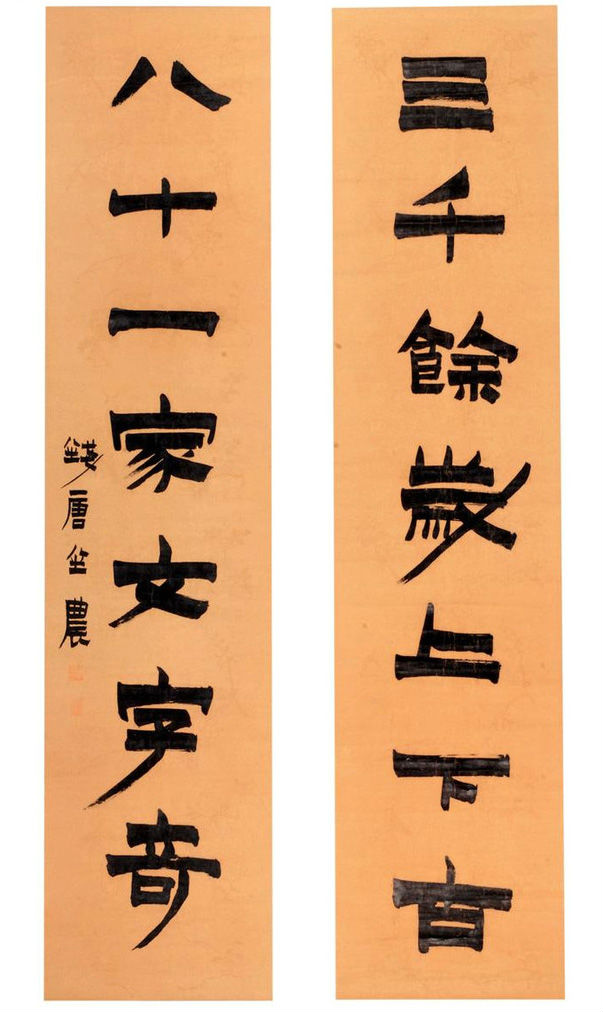 三千餘歲上下古
八十一家文字奇
錢唐金農